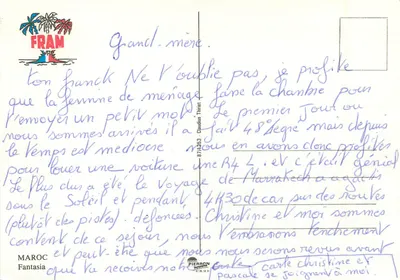 FRAM
Grand-mère.
Ton franck Ne t'oublie pas, je profite
que la femme de ménage fasse la chambre pour
t'envoyer un petit mot. Le premier Jour ou
nous sommes arrivés il a fait 48° degré mais depuis
le temps est mediocre nous en avons donc profités
pour louer une voiture une R4 L. et c'était génial
Le plus dur a été le voyage de Marrakech a agadir
sous le Soleil et pendant 4H30 de car sur des routes
(plutôt des pistes) défoncés. Christine et moi sommes
content de ce séjour, nous t'embrassons tendrement
et peut-être que nous nous serons revus avant
que tu recoives notre carte christine et
pascale se joignent a moi
MAROC
Fantasia